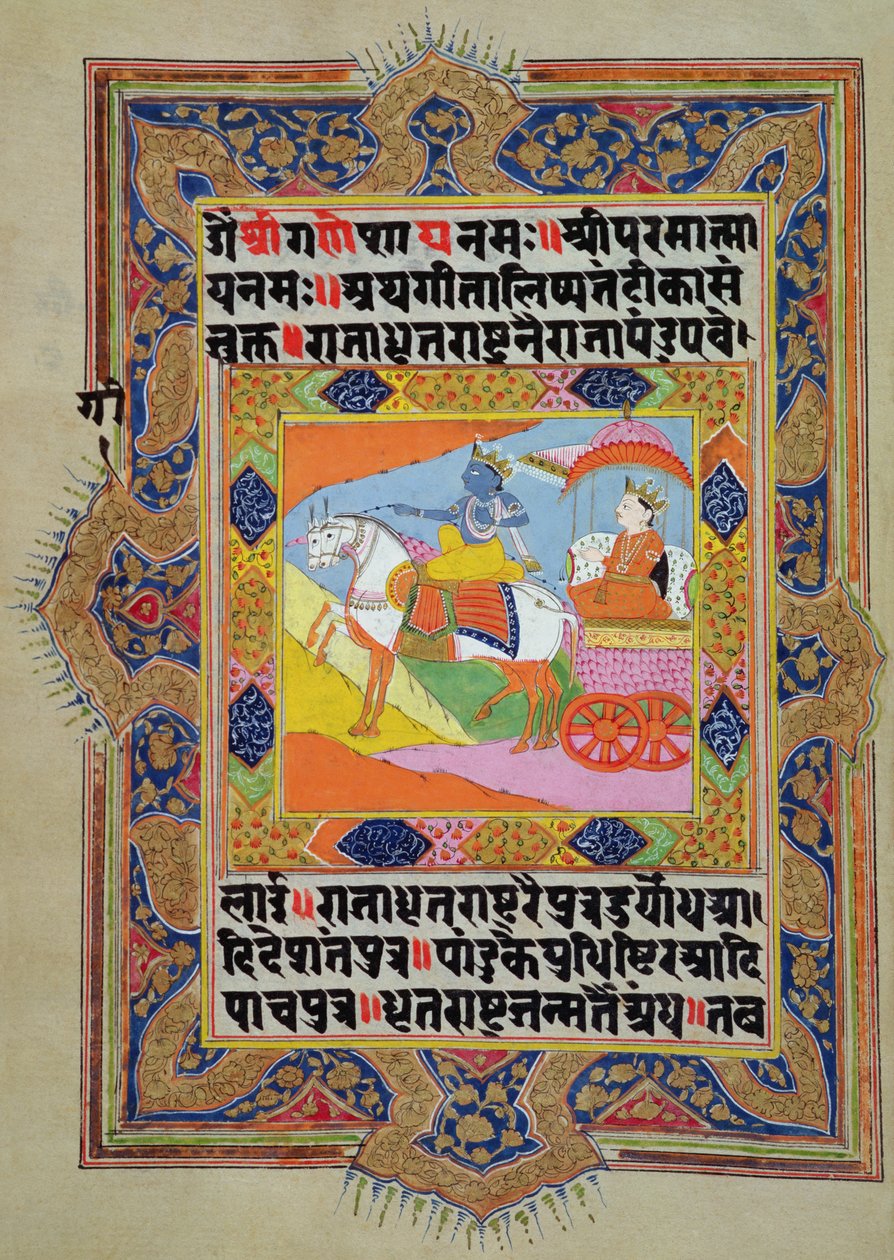 ओं श्री गणेशाय नमः॥ श्रीपरमात्मा
यनमः॥ अथगीतालिष्यतंटीकासं
जुक्त॥ राजाधृतराष्ट्रनैराजापंडुपवे।
गी
लाई॥ राजाधृतराष्ट्ररैपुत्रदुर्योधआ।
दिदेशंतपुत्र॥ पांडुकैयुधिष्टिरआदि
पाचपुत्र॥ धृतराष्ट्रजन्मतैंअंध॥ तब